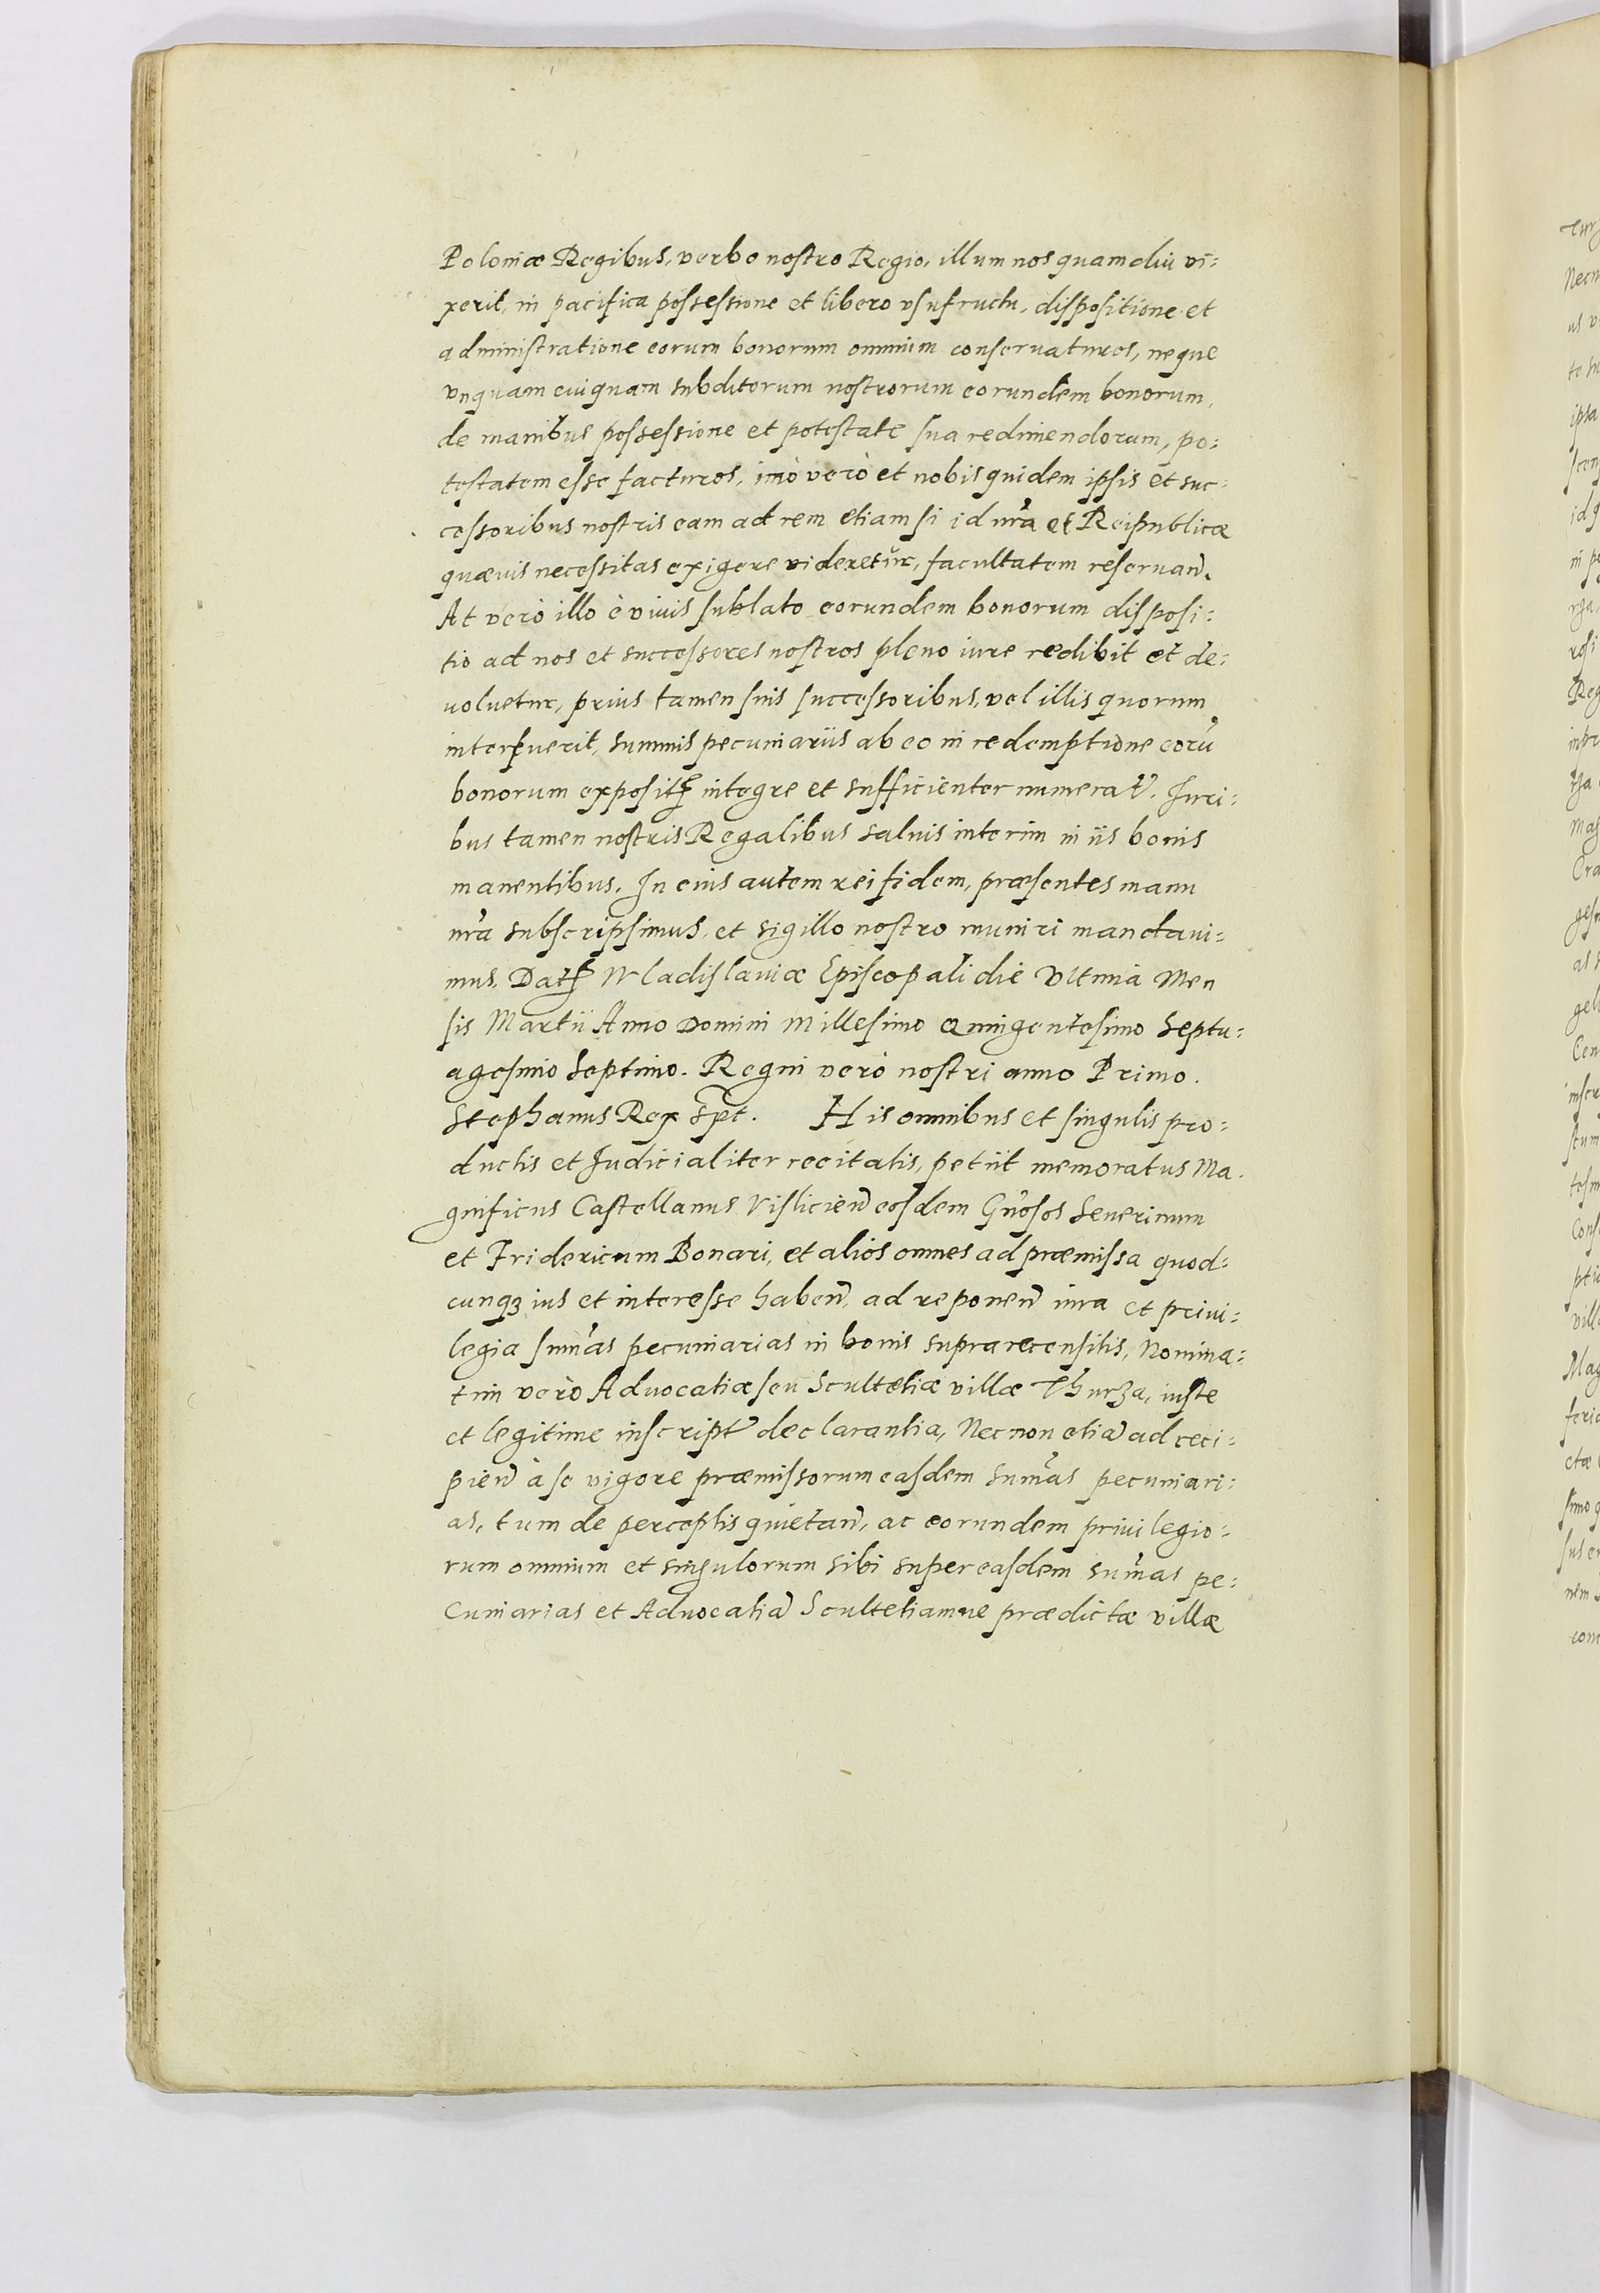 Poloniæ Regibus, verbo nostro Regio, illum nos quamdiu vi:
xerit, in pacifica possessione et libero vsufructu, dispositione et
administratione eorum bonorum omnium conseruaturos, neque
vnquam cuiquam subditorum nostrorum eorundem bonorum,
de manibus possessione et potestate sua redimendorum, po:
testatem esse facturos, imò verò et nobis quidem ipsis et suc:
cessoribus nostris eam ad rem etiam si id nr̃a et Reipublicæ
quæuis necessitas exigere videretur, facultatem reseruan̄.
At verò illo è viuis sublato eorundem bonorum disposi:
tio ad nos et successores nostros pleno iure redibit et de:
uoluetur, prius tamen suis successoribus, vel illis quorum
interfuerit, summis pecuniariis ab eo in redemptione eorũ
bonorum exposit̃ integre et sufficienter numerat̃. Juri:
bus tamen nostris Regalibus saluis interim in iis bonis
manentibus. In eius autem rei fidem, præsentes manu
nr̃a subscripsimus, et sigillo nostro muniri mandaui:
mus. Dat̃ Wladislauiæ Episcopali die Vltima Men
sis Martii Anno Domini Millesimo Quingentesimo Septu:
agesimo Septimo. Regni verò nostri anno Primo.
Stephanus Rex sp̃t. His omnibus et singulis pro:
ductis et Judicialiter recitatis, petiit memoratus Ma.
gnificus Castellanus Visliciēn eosdem Gñosos Seuerinum
et Fridericum Bonari, et alios omnes ad præmissa quod:
cunqꝫ ius et interesse habeñ, ad reponeñ iura et priui:
legia sum̃as pecuniarias in bonis suprarecensitis, Nomina:
tim verò Aduocatiæ seu Scultetiæ villæ Thurza, iuste
et legitime inscript̃ declarantia, Nec non etiā ad reci:
pieñ à se vigore præmissorum easdem sum̃as pecuniari:
as, tum de perceptis quietañ, ac eorundem priuilegio:
rum omnium et singulorum sibi super easdem sum̃as pe:
cuniarias et Aduocatiā Scultetiamue prædictæ villæ